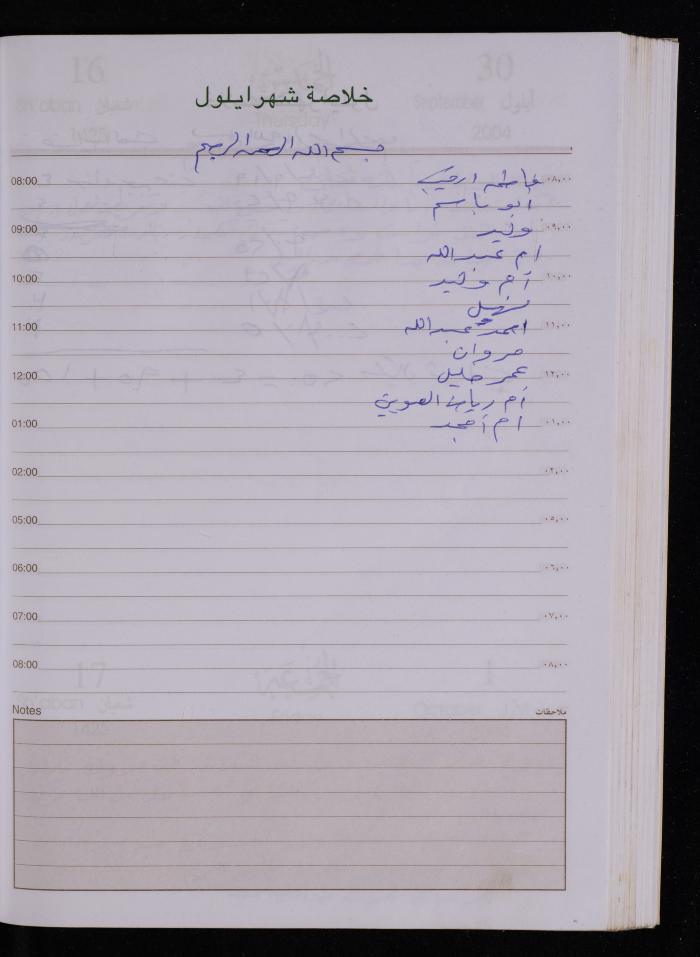 خلاصة شهر ايلول
بسم الله الرحمن الرحيم
08:00 فاطمة ٠٨,٠٠
ابو باسم
09:00 وليد ٠٩,٠٠
ام عبدالله
10:00 أم وليد ١٠,٠٠
11:00 احمد عبدالله ١١,٠٠
مروان
12:00 عمر خليل ١٢,٠٠
أم رياض
01:00 ام أمجد ٠١,٠٠
02:00 ٠٢,٠٠
05:00 ٠٥,٠٠
06:00 ٠٦,٠٠
07:00 ٠٧,٠٠
08:00 ٠٨,٠٠
Notes ملاحظات